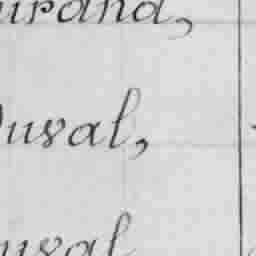 urand,
Duval,
uval